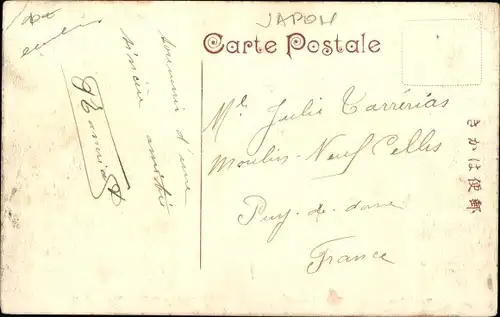 JAPON
Carte Postale
souvenir d'une
sincère amitié
Mle Julie Carrérias
Moulin-Neuf Celles
Puy-de-dome
France
きかは便郵